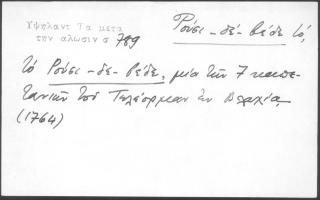 Υψηλαντ Τα μετα
την αλωσιν σ 789
Ρούσι-δέ-βέδε τό,
τό Ρούσι-δε-βέδε, μία τῶν 7 καπε-
τανιῶν τοῦ Τελέορμαν ἐν Βλαχίᾳ
(1764)